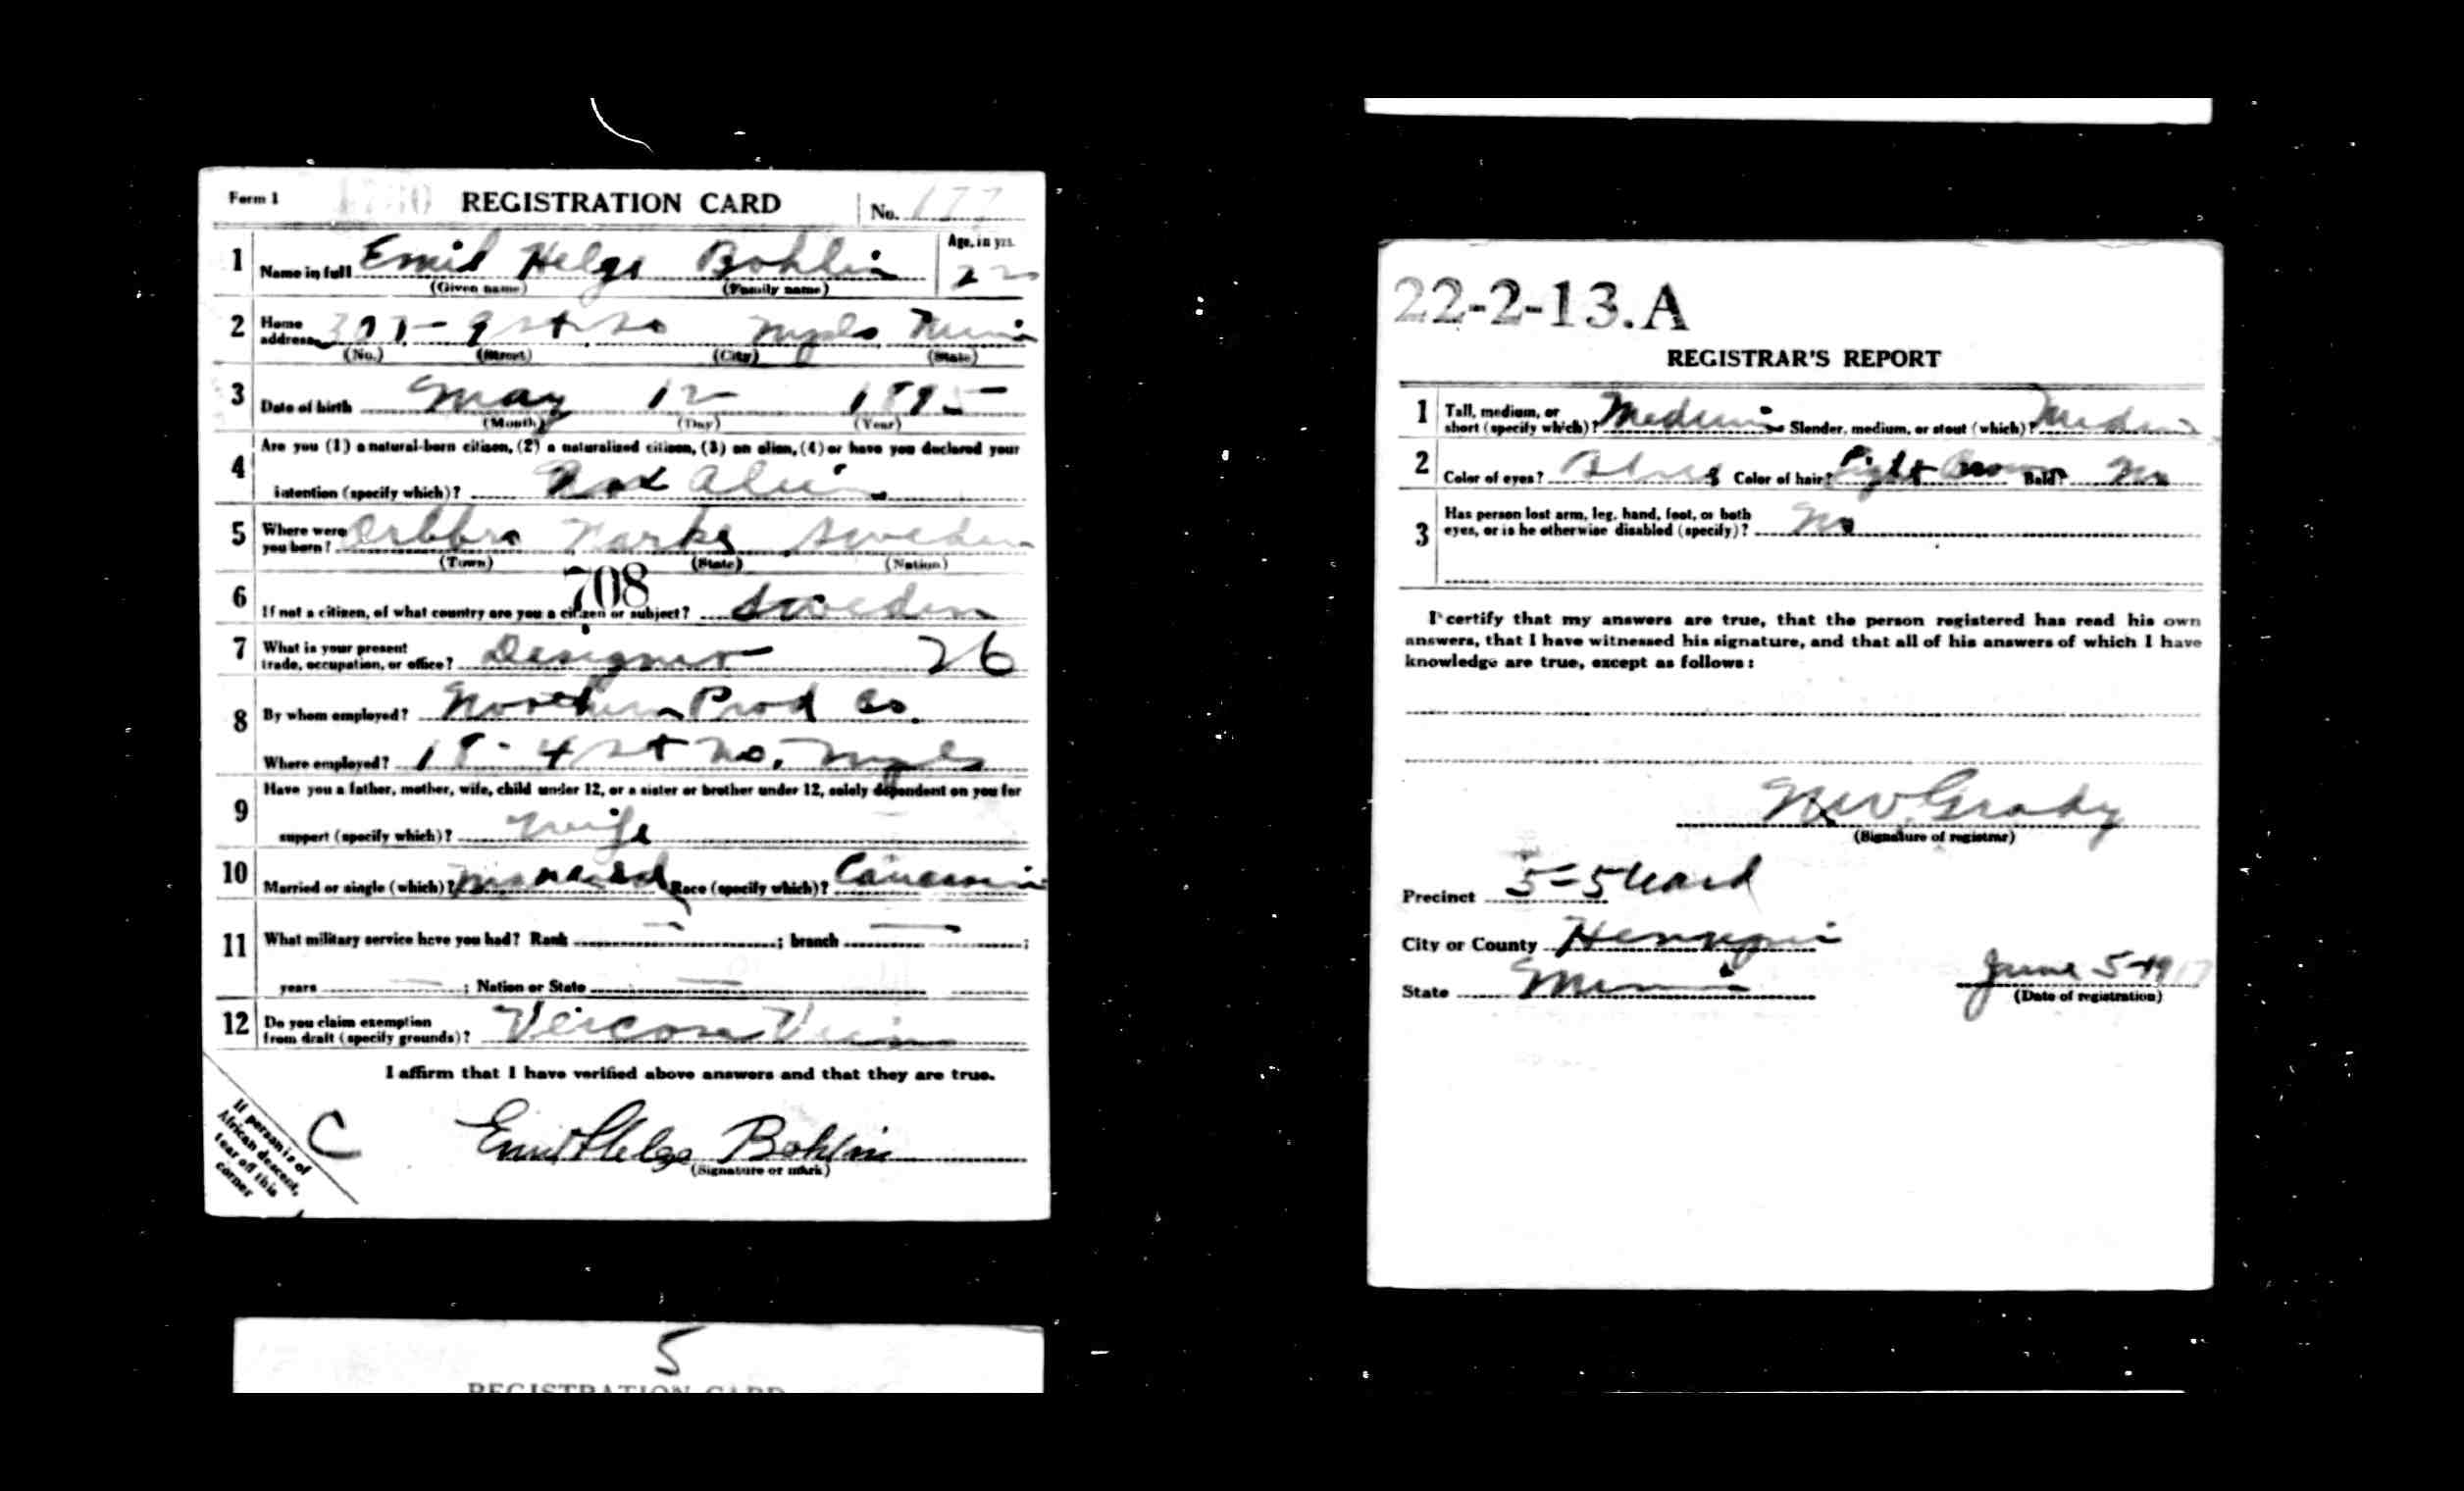 Form 1 REGISTRATION CARD No. 177
1 Name in full Emil Helge Bohlin Age, in yrs. 22
(Given name) (Family name)
2 Home address 307 - 9 st so Mpls Minn
(No.) (Street) (City) (State)
3 Date of birth May 12 1895
(Month) (Day) (Year)
4 Are you (1) a natural-born citizen, (2) a naturalized citizen, (3) an alien, (4) or have you declared your
intention (specify which)? Alien
5 Where were you born? Orebro Narke Sweden
(Town) (State) (Nation)
708
6 If not a citizen, of what country are you a citizen or subject? Sweden
7 What is your present trade, occupation, or office? Designer 26
8 By whom employed? Northern Prod Co.
Where employed? 18 - 4 st No. Mpls
9 Have you a father, mother, wife, child under 12, or a sister or brother under 12, solely dependent on you for
support (specify which)? Wife
10 Married or single (which)? Married Race (specify which)? Caucasian
11 What military service have you had? Rank — ; branch — ;
years — ; Nation or State —
12 Do you claim exemption from draft (specify grounds)?
I affirm that I have verified above answers and that they are true.
If person is of African descent, tear off this corner
C
Emil Helge Bohlin
(Signature or mark)
5
REGISTRATION CARD
22-2-13.A
REGISTRAR'S REPORT
1 Tall, medium, or short (specify which)? Medium Slender, medium, or stout (which)? Medium
2 Color of eyes? Blue Color of hair? Light Brown Bald? No
3 Has person lost arm, leg, hand, foot, or both
eyes, or is he otherwise disabled (specify)? No
I certify that my answers are true, that the person registered has read his own
answers, that I have witnessed his signature, and that all of his answers of which I have
knowledge are true, except as follows:
Grady
(Signature of registrar)
Precinct 5 = 5 Ward
City or County Hennepin
State Minn June 5-1917
(Date of registration)